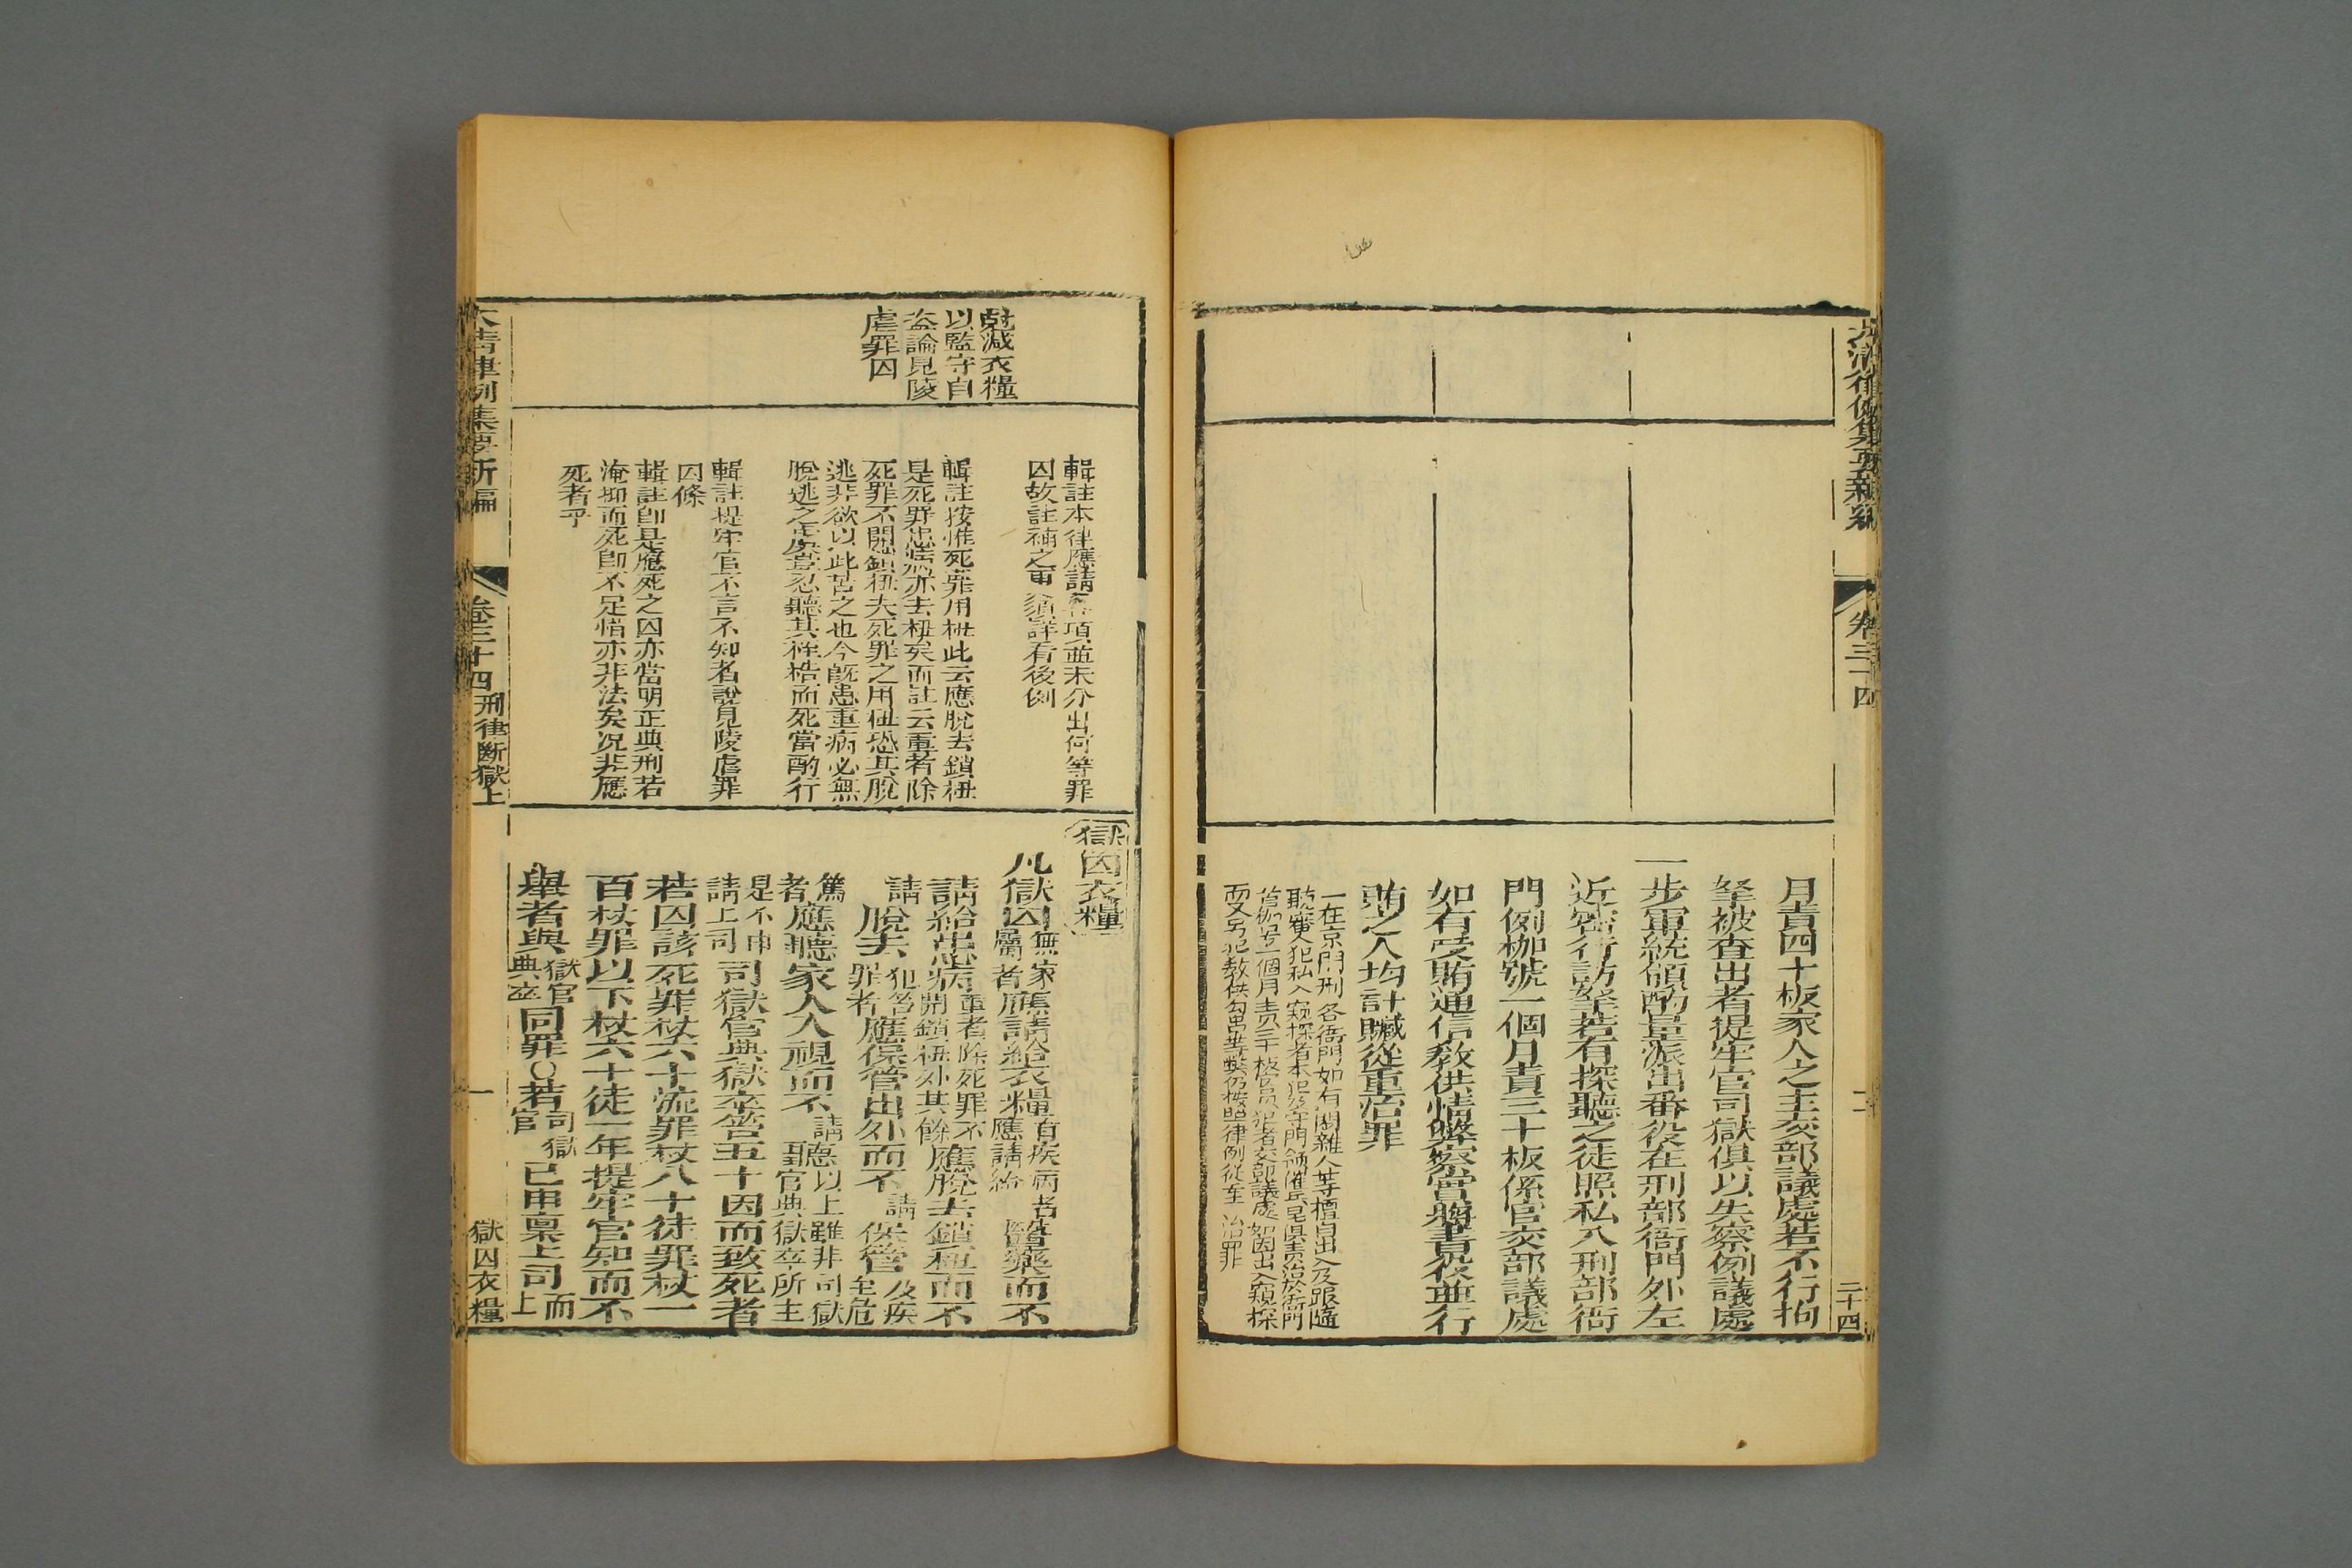 大清律例集要新編
卷三十四
二十四
月責四十板家人之主交部議處若不行拘
拏被查出者提牢官司獄俱以失察例議處
一步軍統領酌量派出番役在刑部衙門外左
近密行訪拏若有探聽之徒照私入刑部衙
門例枷號一個月責三十板係官交部議處
如有受賄通信教供情弊察當將書役並行
賄之人均計贓從重治罪
一在京問刑各衙門如有閒雜人等擅自出入及跟隨
聽審人犯私入窺探者本犯及守門領催兵皂俱責治於衙門
首枷号一個月責三十板官員犯者交部議處如因出入窺探
而又另犯教供勾串等弊仍按照律例從重治罪
尅減衣糧
以監守自
盜論見陵
虐罪囚
輯註本律應請各項並未分出何等罪
囚故註補之再須詳看後例
輯註按惟死罪用杻此云應脫去鎖杻
是死罪患病亦去杻矣而註云重者除
死罪不開鎖杻夫死罪之用杻恐其脫
逃非欲以此苦之也今旣患重病必無
脫逃之虞豈忍聽其桎梏而死當酌行
輯註提牢官不言不知者說見陵虐罪
囚條
輯註卽是應死之囚亦當明正典刑若
淹抑而死卽不足惜亦非法矣况非應
死者乎
獄囚衣糧
凡獄囚無家屬者應請給衣糧有疾病者應請給醫藥而不
請給患病重者除死罪不開鎖杻外其餘應脫去鎖杻而不
請脫去犯笞罪者應保管出外而不請保管及疾至危
篤者應聽家人入視而不請聽以上雖非司獄官典獄卒所主
是不申請上司司獄官典獄卒笞五十因而致死者
若囚該死罪杖六十流罪杖八十徒罪杖一
百杖罪以下杖六十徒一年提牢官知而不
舉者與獄官典卒同罪○若司獄官已申稟上司而上
大清律例集要新編
卷三十四
刑律斷獄上
一
獄囚衣糧